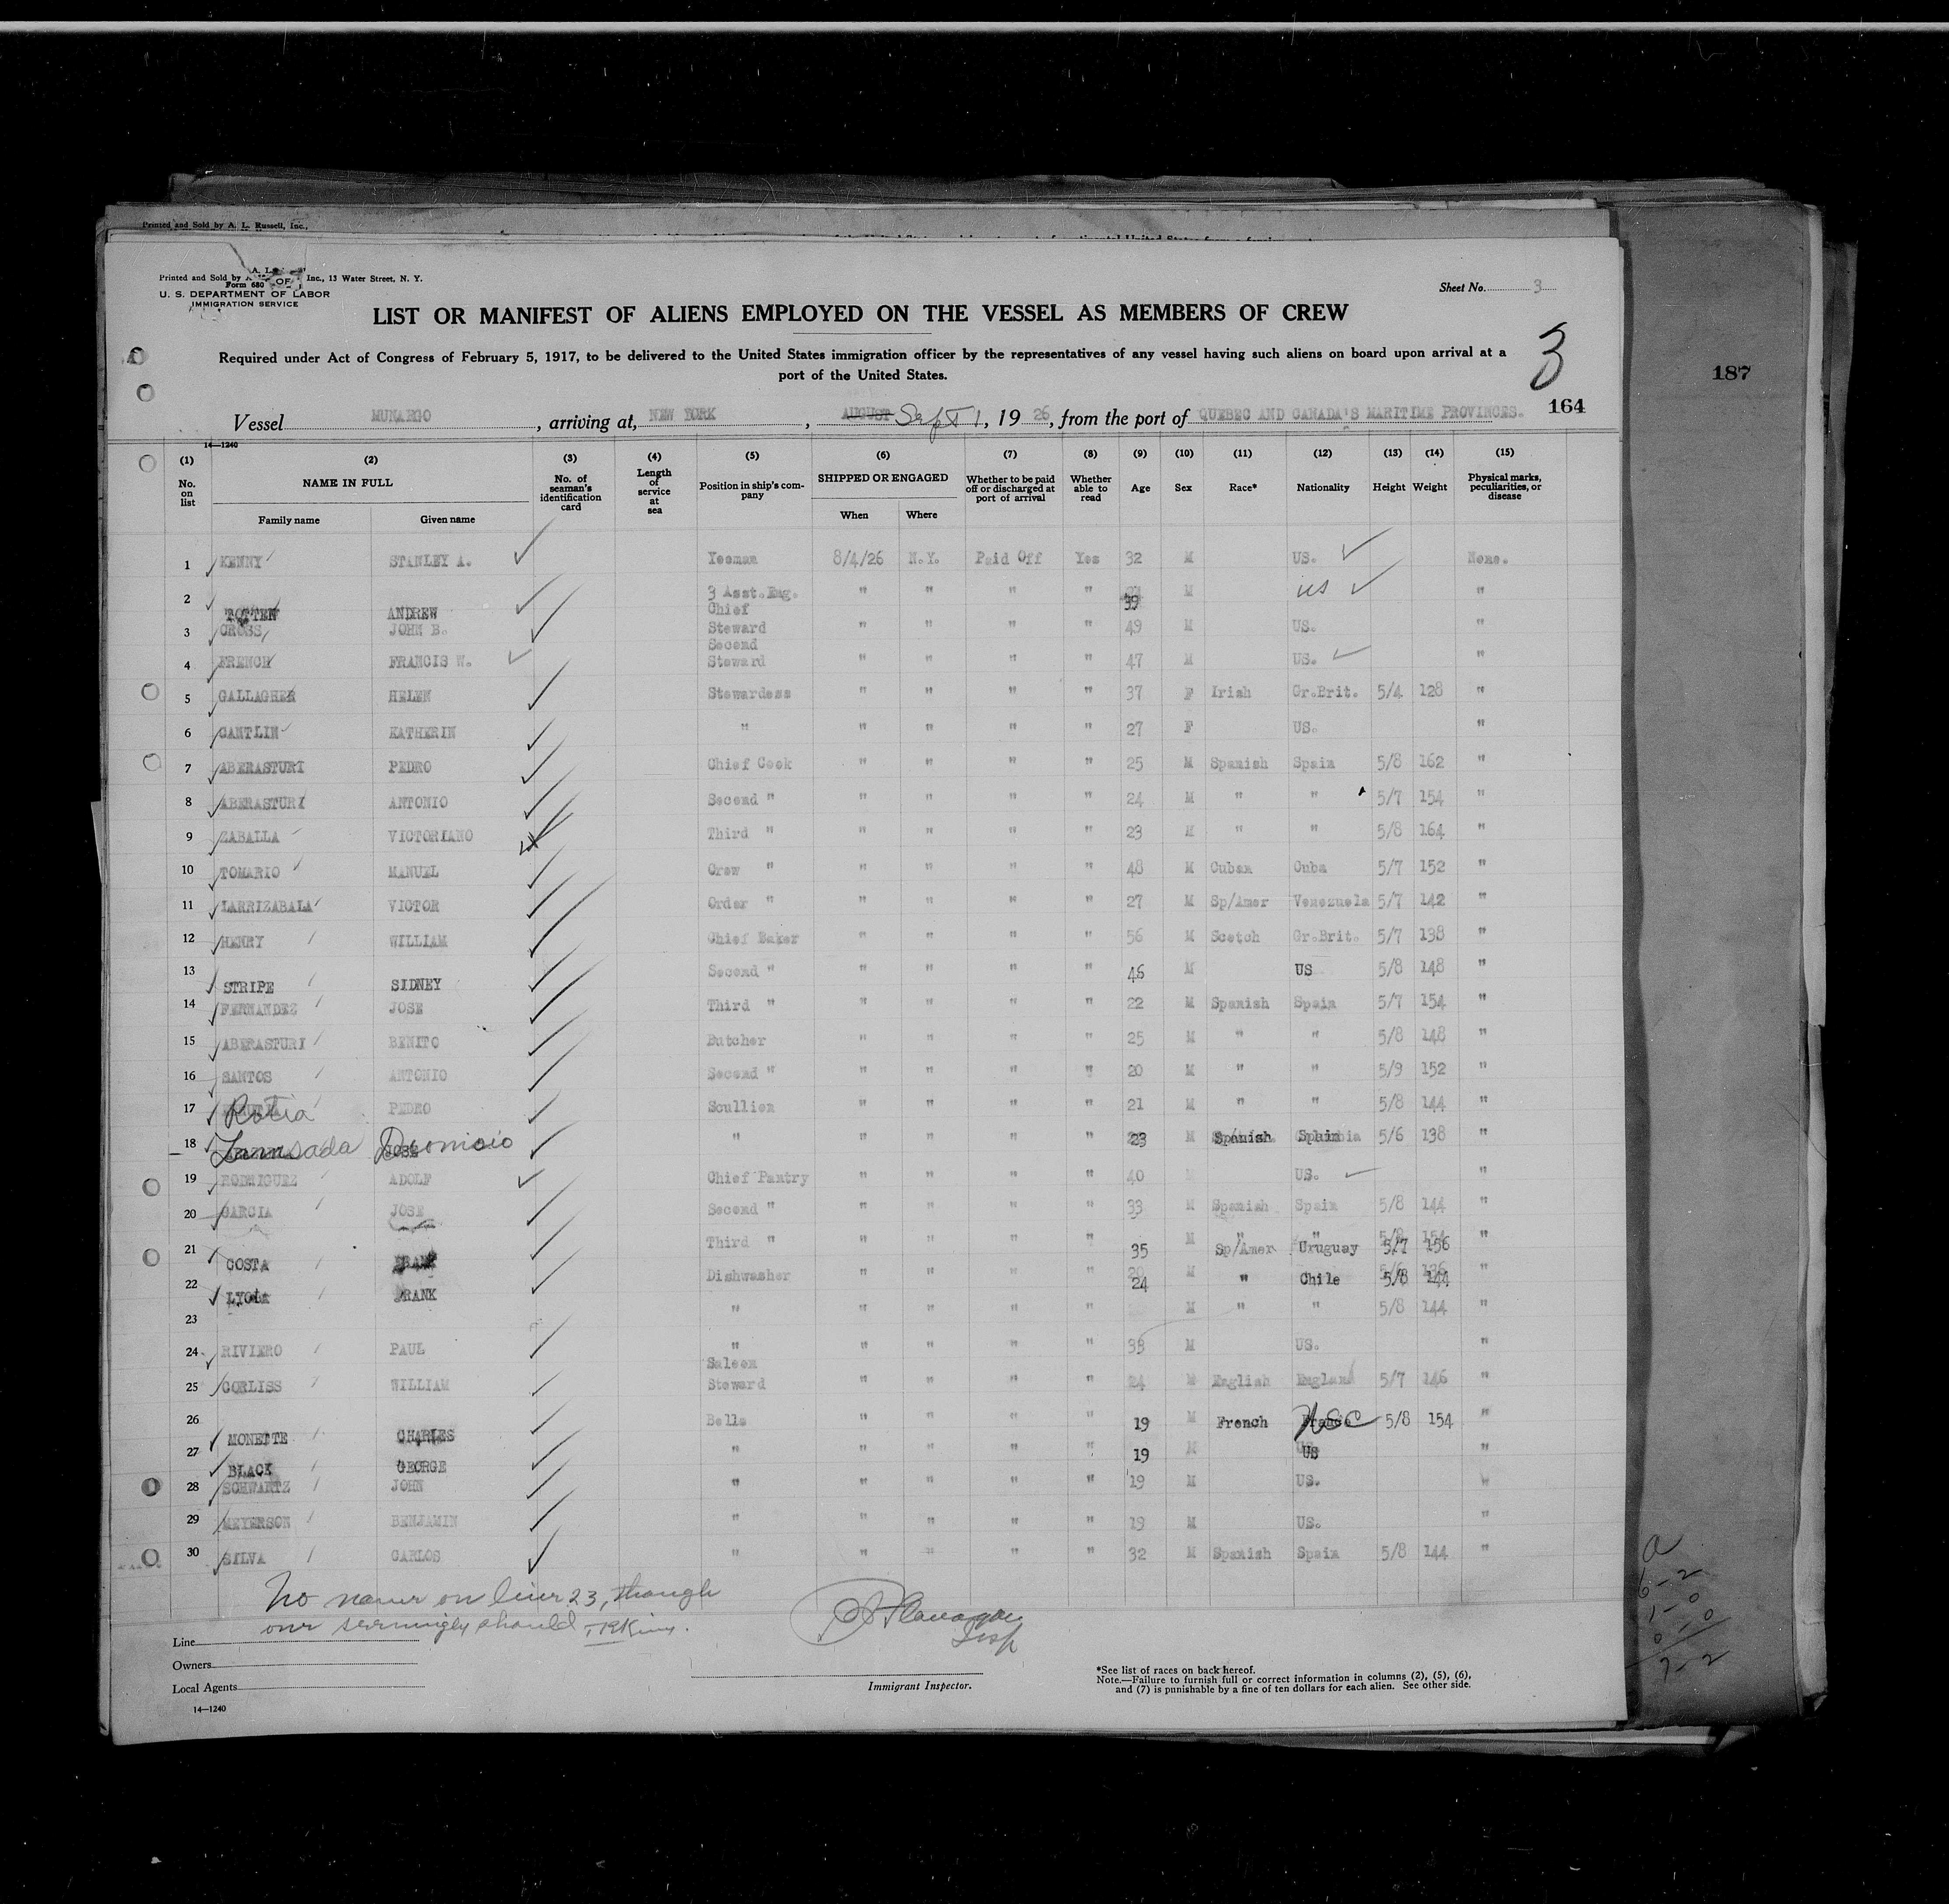 Printed and Sold by A. L. Russell, Inc.,
Printed and Sold by A. L. Inc., 13 Water Street, N. Y.
Form 680
U. S. DEPARTMENT OF LABOR
IMMIGRATION SERVICE
Sheet No. 3
LIST OR MANIFEST OF ALIENS EMPLOYED ON THE VESSEL AS MEMBERS OF CREW
Required under Act of Congress of February 5, 1917, to be delivered to the United States immigration officer by the representatives of any vessel having such aliens on board upon arrival at a
port of the United States.
3
187
164
Vessel MUNARGO, arriving at, NEW YORK, AUGUST Sept 1, 1926, from the port of QUEBEC AND CANADA'S MARITIME PROVINCES.
14—1240
(1) (2) (3) (4) (5) (6) (7) (8) (9) (10) (11) (12) (13) (14) (15)
No. on list NAME IN FULL No. of seaman's identification card Length of service at sea Position in ship's company SHIPPED OR ENGAGED Whether to be paid off or discharged at port of arrival Whether able to read Age Sex Race* Nationality Height Weight Physical marks, peculiarities, or disease
Family name Given name When Where
1 KENNY STANLEY A. Yeoman 8/4/26 N.Y. Paid Off Yes 32 M US. None.
2 TOTTEN ANDREW 3 Asst.Eng. " " " " 39 M US "
3 CROSS JOHN B. Chief Steward " " " " 49 M US. "
4 FRENCH FRANCIS W. Second Steward " " " " 47 M US. "
5 GALLAGHER HELEN Stewardess " " " " 37 F Irish Gr.Brit. 5/4 128 "
6 CANTLIN KATHERIN " " " " " 27 F US. "
7 ABERASTURI PEDRO Chief Cook " " " " 25 M Spanish Spain 5/8 162 "
8 ABERASTURI ANTONIO Second " " " " " 24 M " " 5/7 154 "
9 ZABALLA VICTORIANO Third " " " " " 23 M " " 5/8 164 "
10 TOMARIO MANUEL Crew " " " " " 48 M Cuban Cuba 5/7 152 "
11 LARRIZABALA VICTOR Order " " " " " 27 M Sp/Amer Venezuela 5/7 142 "
12 HENRY WILLIAM Chief Baker " " " " 56 M Scotch Gr.Brit. 5/7 138 "
13 STRIPE SIDNEY Second " " " " " 46 M US 5/8 148 "
14 FERNANDEZ JOSE Third " " " " " 22 M Spanish Spain 5/7 154 "
15 ABERASTURI BENITO Butcher " " " " 25 M " " 5/8 148 "
16 SANTOS ANTONIO Second " " " " " 20 M " " 5/9 152 "
17 Rotia PEDRO Scullion " " " " 21 M " " 5/8 144 "
18 " " " " " 23 M Spanish Spain 5/6 138 "
19 RODRIGUEZ ADOLF Chief Pantry " " " " 40 US. "
20 GARCIA JOSE Second " " " " " 33 M Spanish Spain 5/8 144 "
21 COSTA FRANK Third " " " " " 35 M Sp/Amer Uruguay 5/7 156 "
22 FRANK Dishwasher " " " " 24 M " Chile 5/8 144 "
23 " " " " " M " " 5/8 144 "
24 RIVIERO PAUL " " " " " 33 M US. "
25 CORLISS WILLIAM Saloon Steward " " " " 24 M English England 5/7 146 "
26 MONETTE CHARLES Bells " " " " 19 M French France 5/8 154 "
27 BLACK GEORGE " " " " " 19 M US "
28 SCHWARTZ JOHN " " " " " 19 M US. "
29 MEYERSON BENJAMIN " " " " " 19 M US. "
30 SILVA CARLOS " " " " " 32 M Spanish Spain 5/8 144 "
No name on line 23, though
one seemingly should
Flanagan
Insp
Line
Owners
Local Agents
Immigrant Inspector.
*See list of races on back hereof.
Note.—Failure to furnish full or correct information in columns (2), (5), (6),
and (7) is punishable by a fine of ten dollars for each alien. See other side.
14—1240